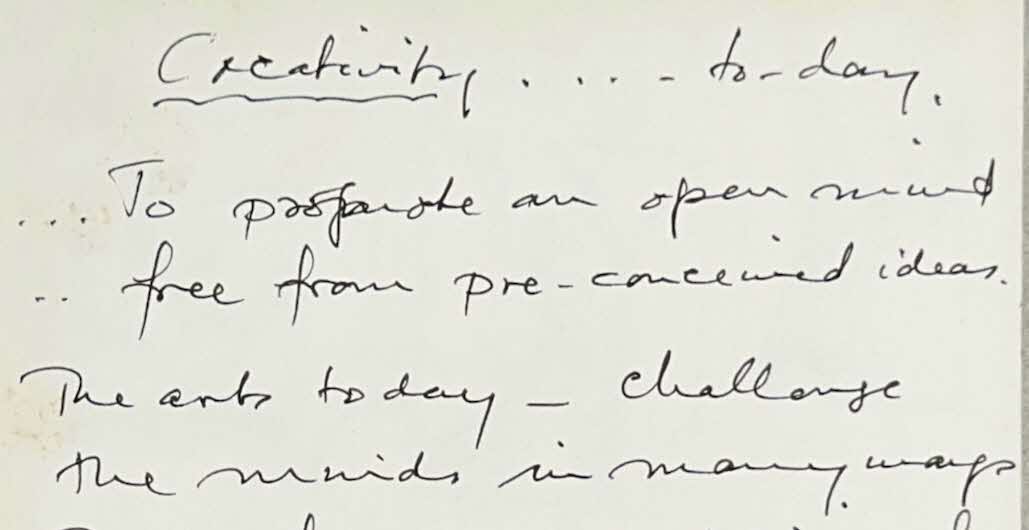 Creativity . . . . - to-day.
... To an open mind
.. free from pre-conceived ideas.
The arts today - challenge
the minds in many ways